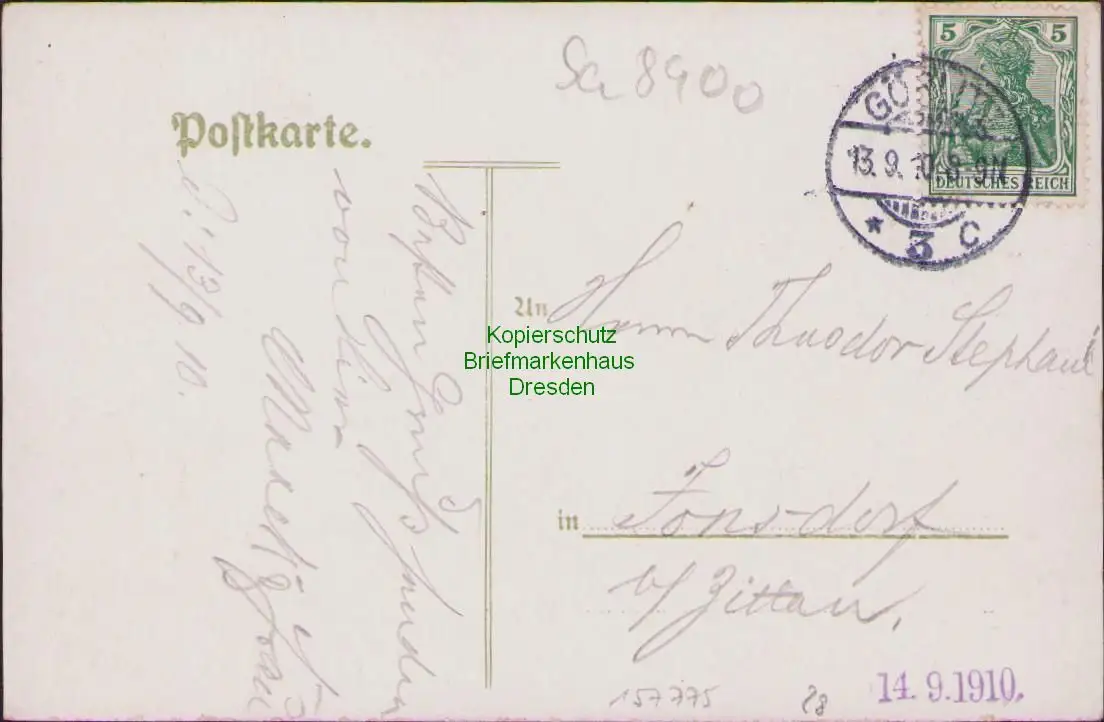 Sa 8400
5 5
DEUTSCHES REICH
GÖRLITZ
13.9.10. 8-9N
* 3 C
Postkarte.
An
Herrn Theodor Stephan
in Jonsdorf
b/ Zittau.
Kopierschutz
Briefmarkenhaus
Dresden
Gruß senden
von hier
13/9. 10.
157775
28
14.9.1910.